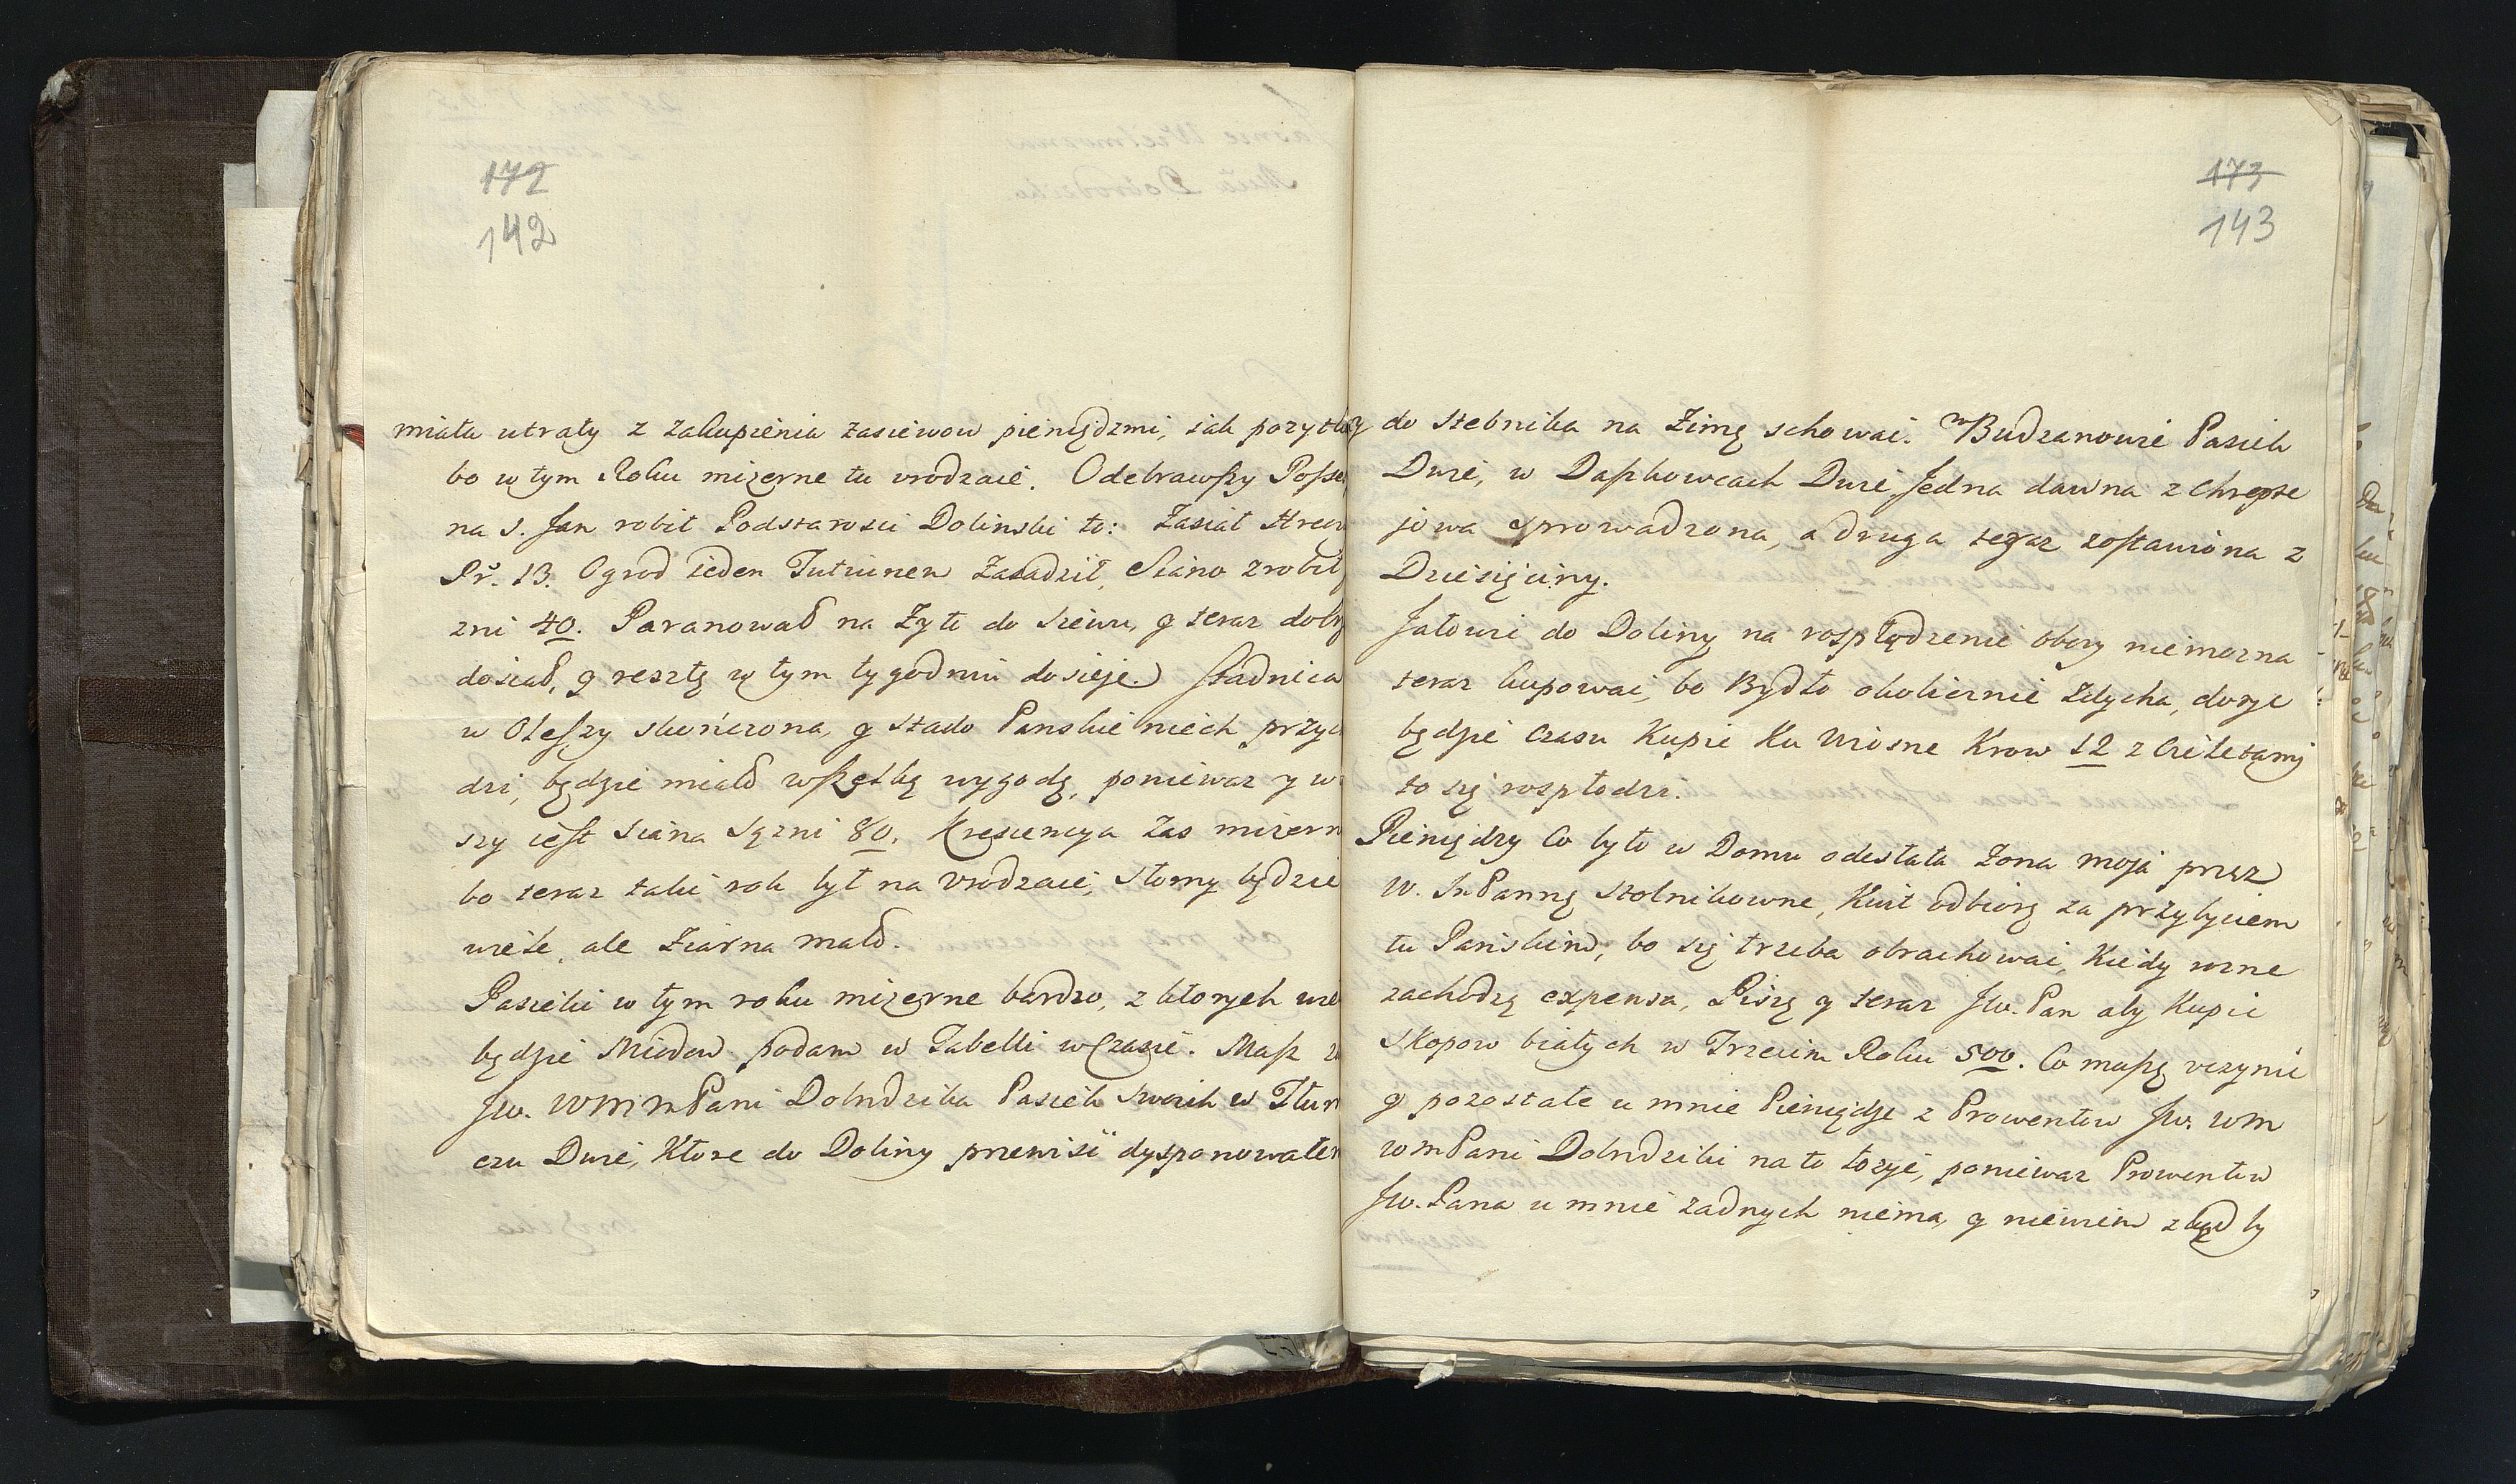 172
142
miała utraty z zakupienia zasiewow pieniędzmi, iak pozytku
bo w tym Roku mizerne tu urodzaie. Odebrawszy Posse
na S. Jan robił Podstarosci Dolinski to: Zasiał Hrec
Pr. 13. Ogrod ieden Tutiunem Zasadził, Siano zrobił
zni 40. Paranował na Zyto do siewu, y teraz dob
dosiał, y resztę w tym tygodniu dosieje. Stadnica
w Oleszy skończona, y stado Panskie niech przy
dzi, będzie miało wszelką wygodę, poniewaz y w
szy iest siana Sęzni 80. Krescencya zas mizern
bo teraz taki rok był na Vrodzaie, słomy będzie
wiele, ale Ziarna mało.
Pasieki w tym roku mizerne bardzo, z ktorych wie
będzie Miodow podam w Tabelli w Czasie. Masz
Jw. WMM Pani Dobrodzika Pasiek swoich w Tłum
czu Dwie, Ktore do Doliny przewisć dysponowałem
173
143
do stebnika na Zimę schować. w Budzanowie Pasiek
Dwie, w Daszkowcach Dwie Jedna dawna z Chrepte
jowa sprowadzona, a druga teraz zostawiona z
Dziesięciny.
Jałowic do Doliny na rospłodzenie obory niemozna
teraz kupować, bo Bydło okolicznie Zdycha, dosyc
będzie czasu Kupic Ku Wiosne Krow 12 z Cielętami
to się rospłodzi.
Pieniędzy Co było w Domu odesłała Zona moja przez
W. Jm Pannę Stolnikowne, Kwit odbiorę za przybyciem
tu Panskim, bo się trzeba obrachować, Kiedy rozne
zachodzą expensa, Piszę y teraz Jw. Pan aby Kupić
Skopow białych w Trzecim Roku 500. Co muszę vczynić
y pozostałe u mnie Pieniądze z Prowentow Jw. WM
WM Pani Dobrodziki na to łozyć, poniewaz Prowentow
Jw. Pana u mnie zadnych niema, y niewiem zkąd by